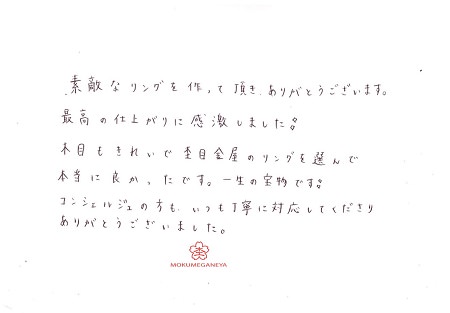 素敵なリングを作って頂き、ありがとうございます。
最高の仕上がりに感激しました!
木目もきれいで杢目金屋のリングを選んで
本当に良かったです。一生の宝物です!
コンシェルジュの方も、いつも丁寧に対応してくださり
ありがとうございました。
MOKUMEGANEYA